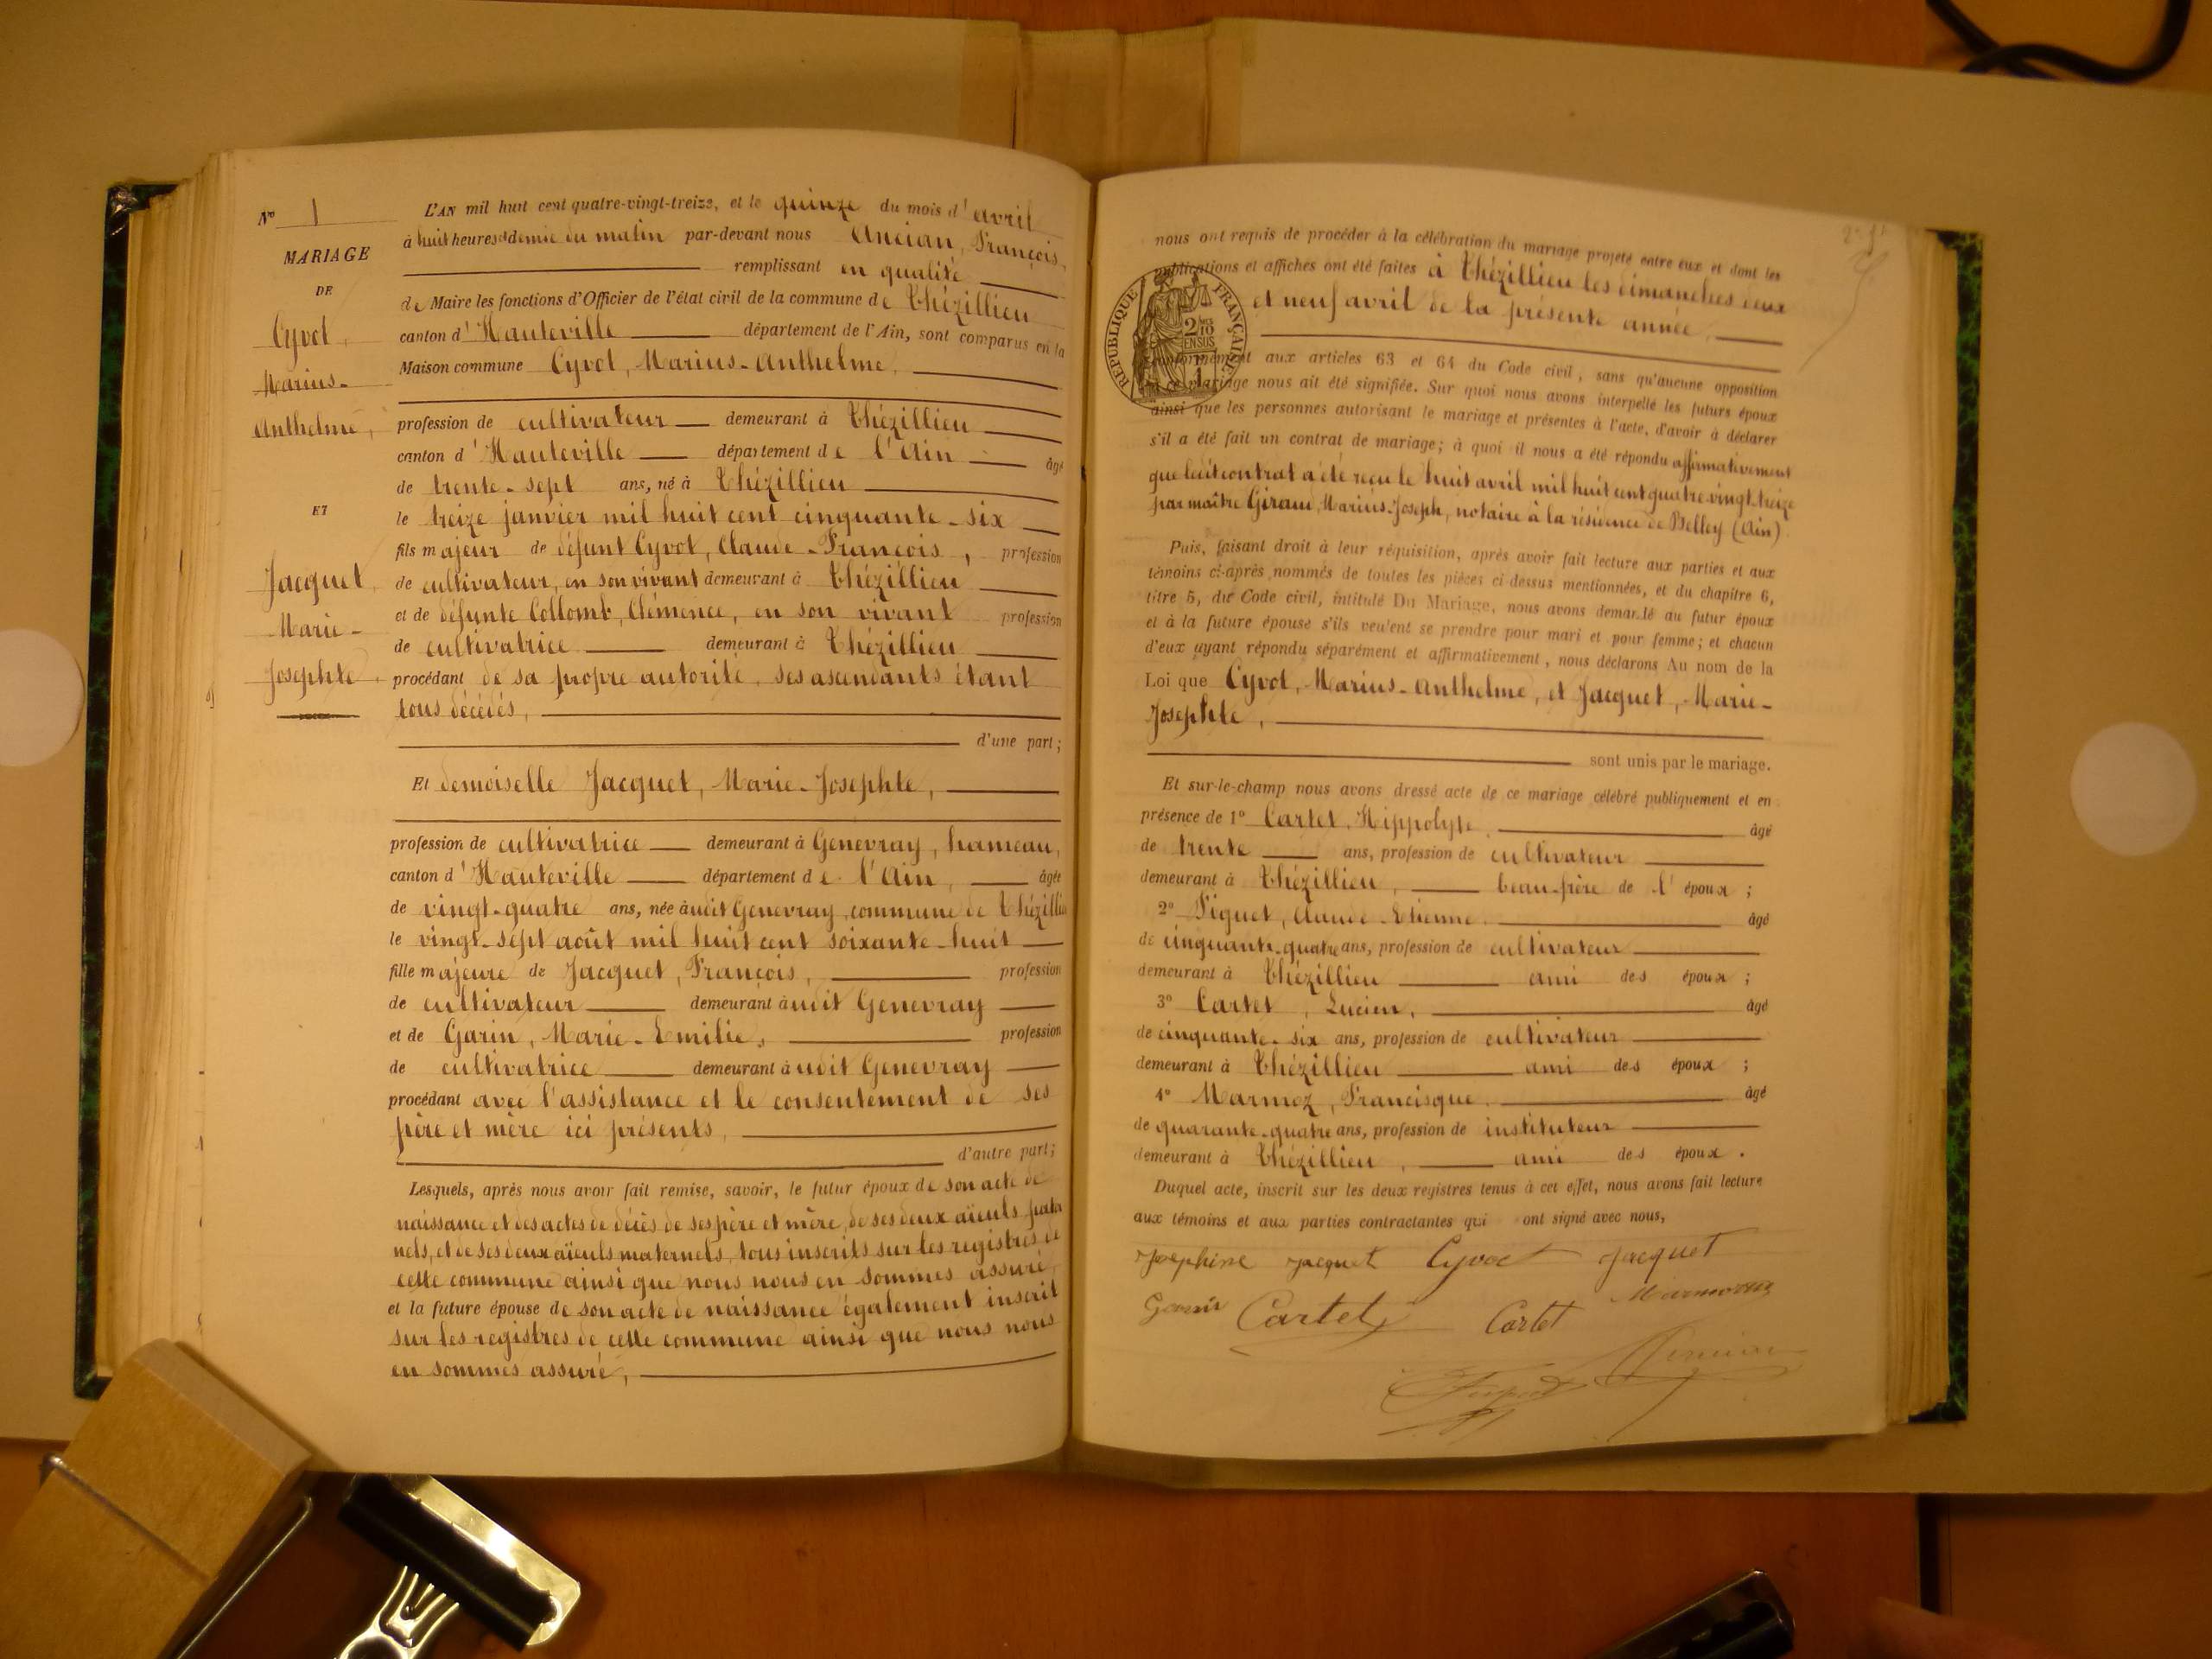 N° 1
MARIAGE
DE
Cyvot,
Marius-
Anthelme,
ET
Jacquet,
Marie-
Josephte.
L'AN mil huit cent quatre-vingt-treize, et le quinze du mois d'avril
à huit heures et demie du matin par-devant nous Ancian, François,
remplissant en qualité
de Maire les fonctions d'Officier de l'état civil de la commune de Thézillieu
canton d'Hauteville département de l'Ain, sont comparus en la
Maison commune Cyvot, Marius-Anthelme,
profession de cultivateur demeurant à Thézillieu
canton d'Hauteville département de l'Ain âgé
de trente-sept ans, né à Thézillieu
le treize janvier mil huit cent cinquante-six
fils majeur de défunt Cyvot, Claude-François, profession
de cultivateur, en son vivant demeurant à Thézillieu
et de défunte Collomb, Clémence, en son vivant profession
de cultivatrice demeurant à Thézillieu
procédant de sa propre autorité, ses ascendants étant
tous décédés,
d'une part;
Et demoiselle Jacquet, Marie-Josephte,
profession de cultivatrice demeurant à Genevray, hameau,
canton d'Hauteville département de l'Ain, âgée
de vingt-quatre ans, née audit Genevray, commune de Thézillieu
le vingt-sept août mil huit cent soixante-huit
fille majeure de Jacquet, François, profession
de cultivateur demeurant audit Genevray
et de Garin, Marie-Emilie, profession
de cultivatrice demeurant audit Genevray
procédant avec l'assistance et le consentement de ses
père et mère ici présents,
d'autre part;
Lesquels, après nous avoir fait remise, savoir, le futur époux de son acte de
naissance et des actes de décès de ses père et mère, de ses deux aïeuls pater
nels, et de ses deux aïeuls maternels, tous inscrits sur les registres de
cette commune ainsi que nous nous en sommes assuré,
et la future épouse de son acte de naissance également inscrit
sur les registres de cette commune ainsi que nous nous
en sommes assuré,
nous ont requis de procéder à la célébration du mariage projeté entre eux et dont les
publications et affiches ont été faites à Thézillieu les dimanches deux
et neuf avril de la présente année,
RÉPUBLIQUE FRANÇAISE
2/10 EN SUS
conformément aux articles 63 et 64 du Code civil, sans qu'aucune opposition
à ce mariage nous ait été signifiée. Sur quoi nous avons interpellé les futurs époux
ainsi que les personnes autorisant le mariage et présentes à l'acte, d'avoir à déclarer
s'il a été fait un contrat de mariage; à quoi il nous a été répondu affirmativement
que ledit contrat a été reçu le huit avril mil huit cent quatre-vingt-treize
par maître Giraud, Marius-Joseph, notaire à la résidence de Belley (Ain).
Puis, faisant droit à leur réquisition, après avoir fait lecture aux parties et aux
témoins ci-après nommés de toutes les pièces ci-dessus mentionnées, et du chapitre 6,
titre 5, du Code civil, intitulé Du Mariage, nous avons demandé au futur époux
et à la future épouse s'ils veulent se prendre pour mari et pour femme; et chacun
d'eux ayant répondu séparément et affirmativement, nous déclarons Au nom de la
Loi que Cyvot, Marius-Anthelme, et Jacquet, Marie-
Josephte,
sont unis par le mariage.
Et sur-le-champ nous avons dressé acte de ce mariage célébré publiquement et en
présence de 1° Cartet, Hippolyte, âgé
de trente ans, profession de cultivateur
demeurant à Thézillieu, beau-frère de l'époux;
2° Piguet, Claude-Etienne, âgé
de cinquante-quatre ans, profession de cultivateur
demeurant à Thézillieu ami des époux;
3° Cartet, Lucien, âgé
de cinquante-six ans, profession de cultivateur
demeurant à Thézillieu ami des époux;
4° Marmoz, Francisque, âgé
de quarante-quatre ans, profession de instituteur
demeurant à Thézillieu, ami des époux.
Duquel acte, inscrit sur les deux registres tenus à cet effet, nous avons fait lecture
aux témoins et aux parties contractantes qui ont signé avec nous,
Josephine Jacquet Cyvot Jacquet
Garin Cartet Cartet Marmoz